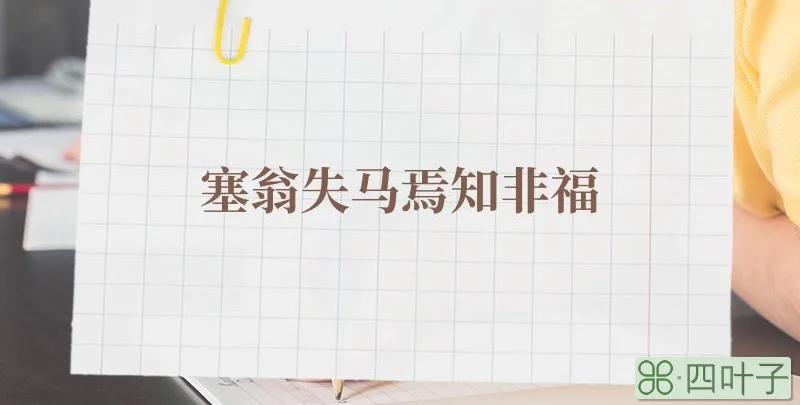 塞翁失马焉知非福
四叶子